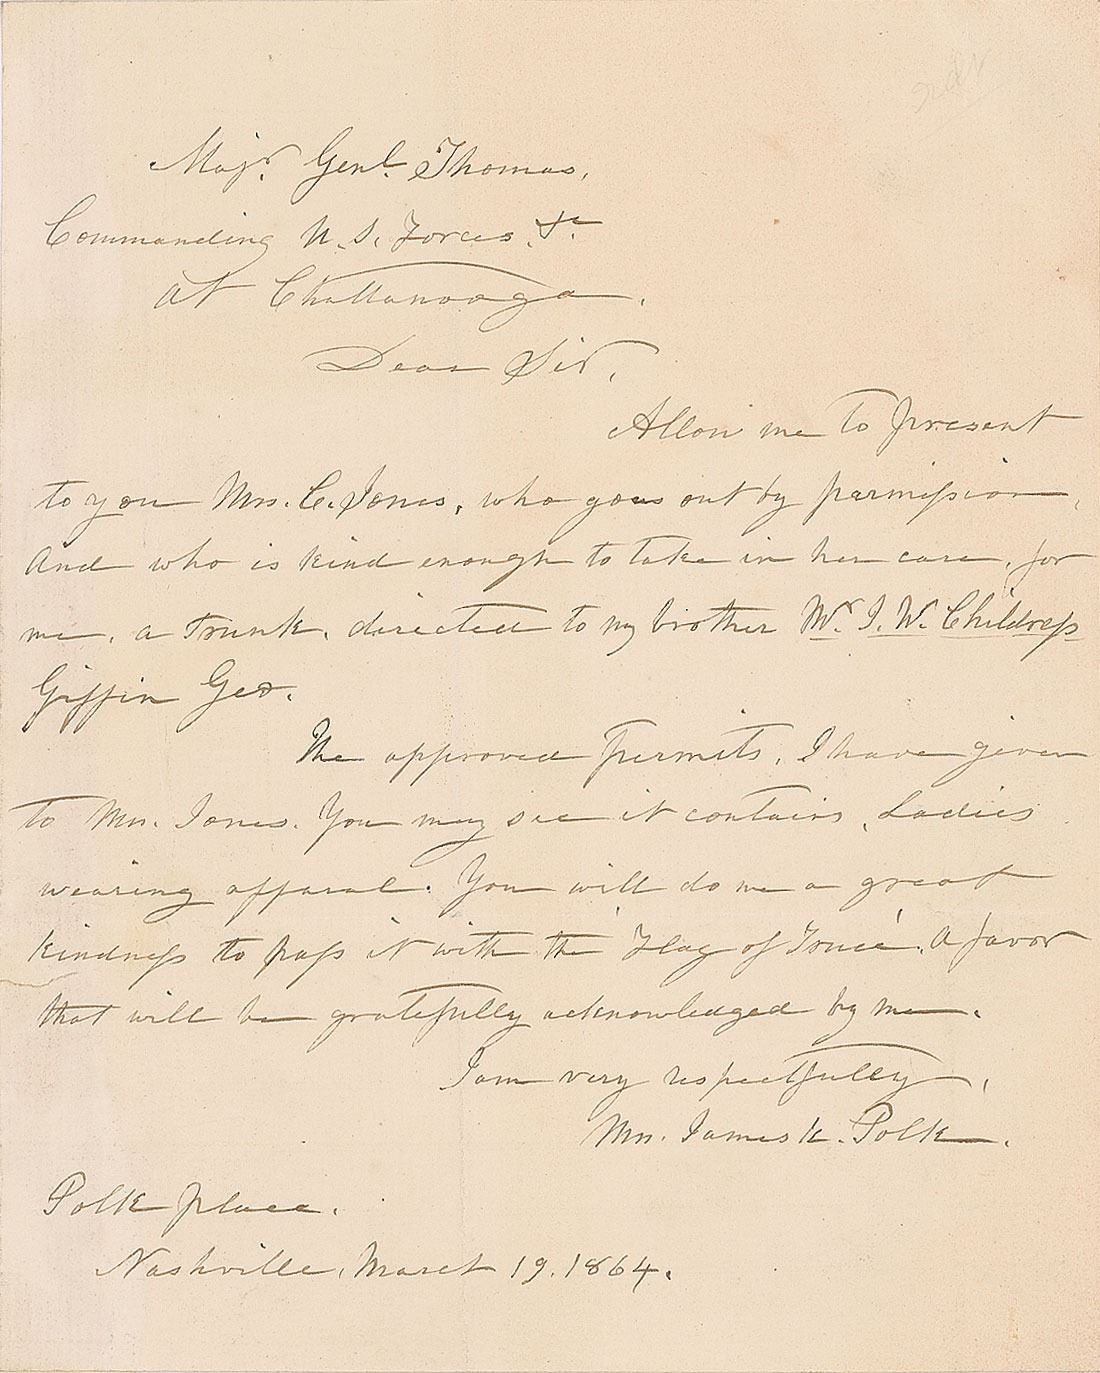 Majr. Genl. Thomas,
Commanding U. S. Forces &c
at Chattanooga.
Dear Sir,
Allow me to present
to you Mrs. C. Jones, who goes out by permission,
And who is kind enough to take in her care, for
me, a Trunk, directed to my brother Mr. J. W. Childress
Griffin Geo.
The approved permits, I have given
to Mrs. Jones. You may see it contains, Ladies
wearing apparal. You will do me a great
kindness to pass it with the 'Flag of Truce'. A favor
that will be gratefully acknowledged by me.
I am very respectfully,
Mrs. James K. Polk.
Polk place.
Nashville, March 19. 1864.